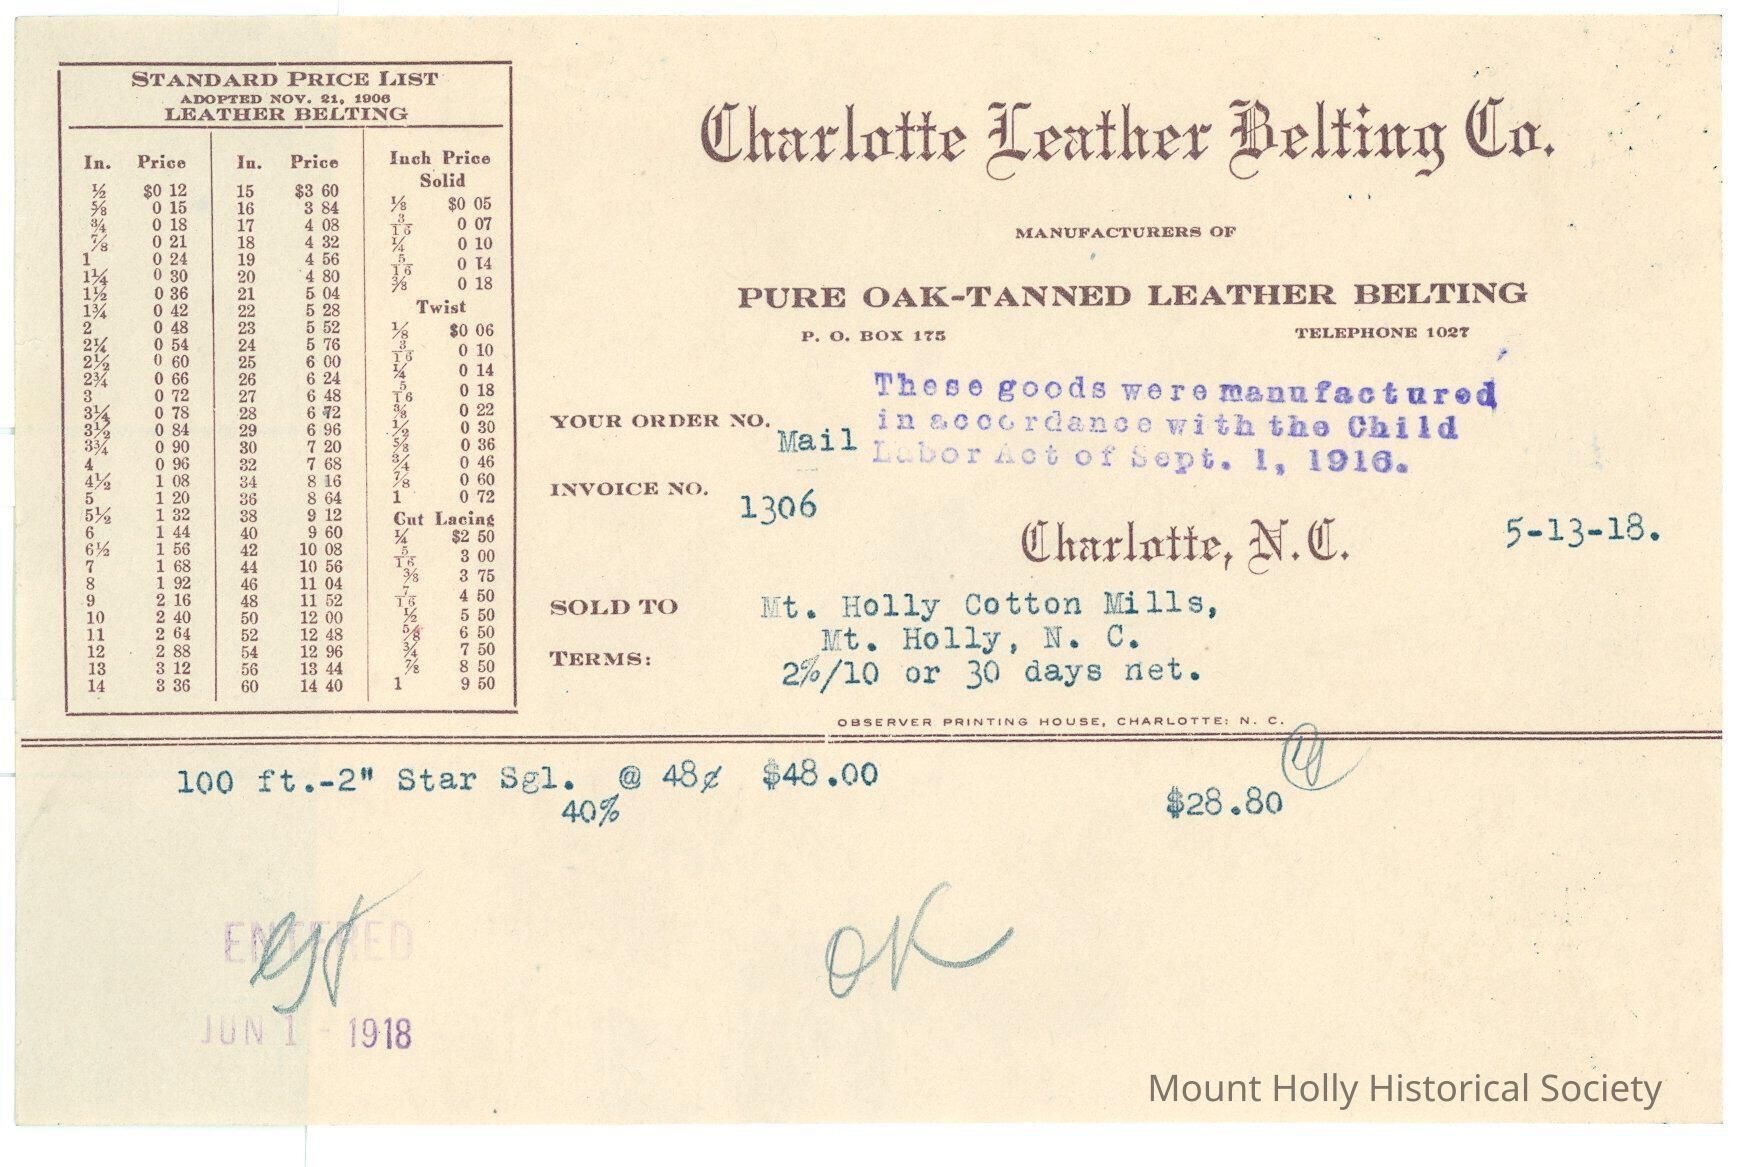 STANDARD PRICE LIST
ADOPTED NOV. 21, 1906
LEATHER BELTING
In. Price In. Price Inch Price
Solid
½ $0 12 15 $3 60 ⅛ $0 05
⅝ 0 15 16 3 84 3/16 0 07
¾ 0 18 17 4 08 ¼ 0 10
⅞ 0 21 18 4 32 5/16 0 14
1 0 24 19 4 56 ⅜ 0 18
1¼ 0 30 20 4 80
1½ 0 36 21 5 04 Twist
1¾ 0 42 22 5 28 ⅛ $0 06
2 0 48 23 5 52 3/16 0 10
2¼ 0 54 24 5 76 ¼ 0 14
2½ 0 60 25 6 00 5/16 0 18
2¾ 0 66 26 6 24 ⅜ 0 22
3 0 72 27 6 48 ½ 0 30
3¼ 0 78 28 6 72 ⅝ 0 36
3½ 0 84 29 6 96 ¾ 0 46
3¾ 0 90 30 7 20 ⅞ 0 60
4 0 96 32 7 68 1 0 72
4½ 1 08 34 8 16
5 1 20 36 8 64 Cut Lacing
5½ 1 32 38 9 12 ¼ $2 50
6 1 44 40 9 60 5/16 3 00
6½ 1 56 42 10 08 ⅜ 3 75
7 1 68 44 10 56 7/16 4 50
8 1 92 46 11 04 ½ 5 50
9 2 16 48 11 52 ⅝ 6 50
10 2 40 50 12 00 ¾ 7 50
11 2 64 52 12 48 ⅞ 8 50
12 2 88 54 12 96 1 9 50
13 3 12 56 13 44
14 3 36 60 14 40
Charlotte Leather Belting Co.
MANUFACTURERS OF
PURE OAK-TANNED LEATHER BELTING
P. O. BOX 175 TELEPHONE 1027
These goods were manufactured
in accordance with the Child
Labor Act of Sept. 1, 1916.
YOUR ORDER NO. Mail
INVOICE NO. 1306
Charlotte, N.C. 5-13-18.
SOLD TO Mt. Holly Cotton Mills,
Mt. Holly, N. C.
TERMS: 2%/10 or 30 days net.
OBSERVER PRINTING HOUSE, CHARLOTTE: N. C.
100 ft.-2" Star Sgl. @ 48¢ $48.00
40% $28.80
ENTERED
OK
JUN 1 - 1918
Mount Holly Historical Society